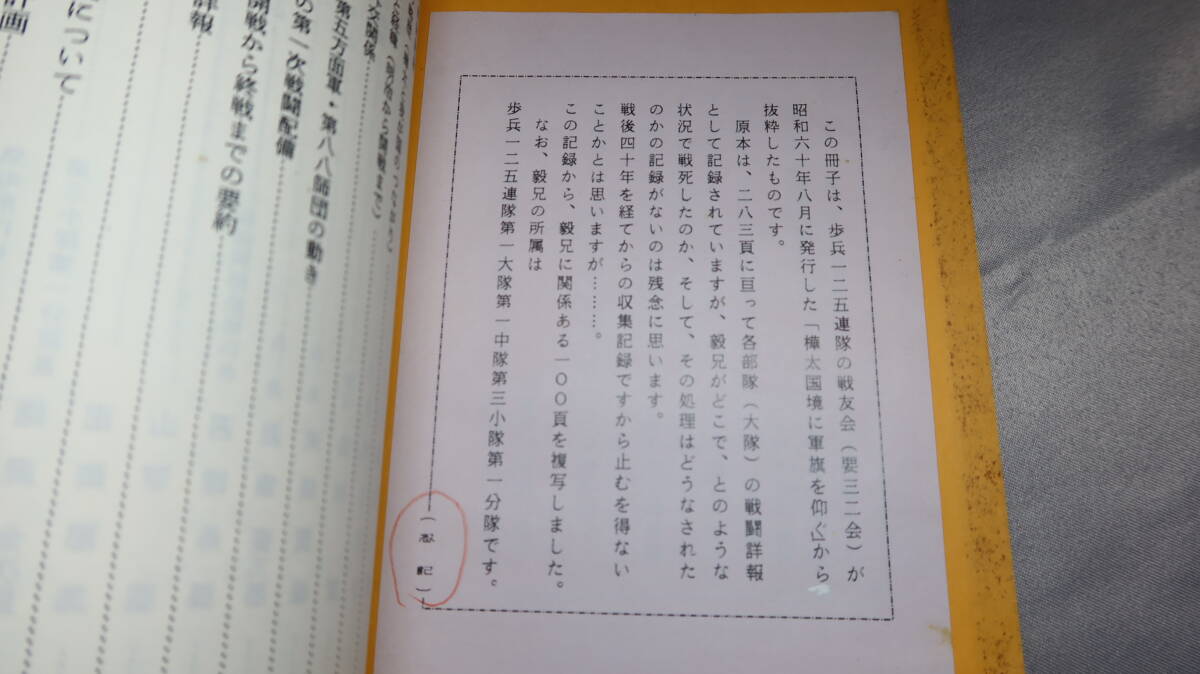 この冊子は、歩兵一二五連隊の戦友会(要三二会)が
昭和六十年八月に発行した「樺太国境に軍旗を仰ぐ」から
抜粋したものです。
原本は、二八三頁に亘って各部隊(大隊)の戦闘詳報
として記録されていますが、毅兄がどこで、とのような
状況で戦死したのか、そして、その処理はどうなされた
のかの記録がないのは残念に思います。
戦後四十年を経てからの収集記録ですから止むを得ない
ことかとは思いますが………。
この記録から、毅兄に関係ある一〇〇頁を複写しました。
なお、毅兄の所属は
歩兵一二五連隊第一大隊第一中隊第三小隊第一分隊です。
(忍記)
(明治から開戦まで)
第五方面軍・第八八師団の動き
の第一次戦闘配備
開戦から終戦までの要約
詳報
について
計画